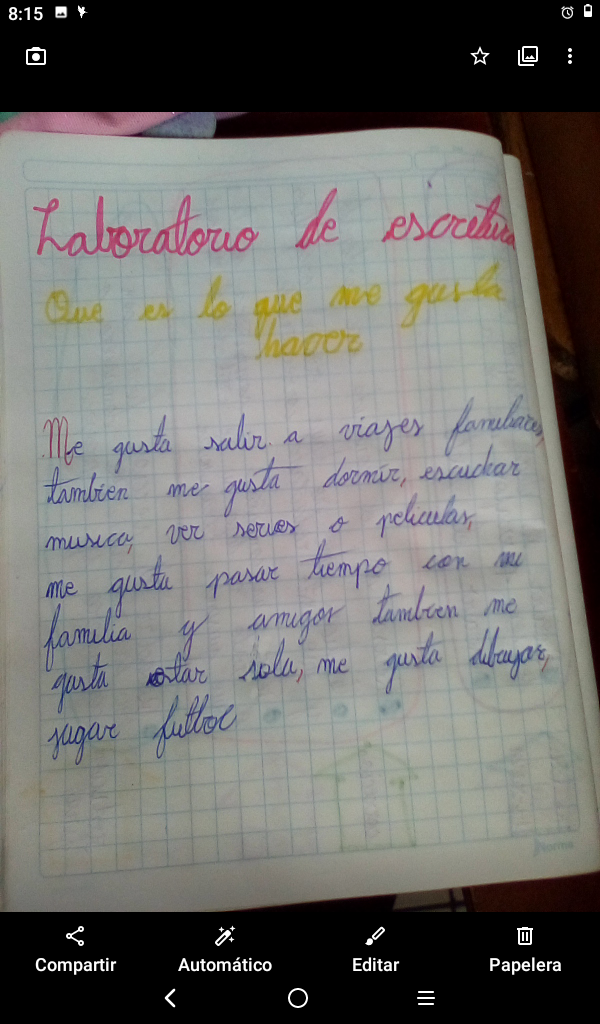 8:15
Laboratorio de escritura
Que es lo que me gusta
hacer
Me gusta salir a viajes familiares,
tambien me gusta dormir, escuchar
musica, ver series o peliculas,
me gusta pasar tiempo con mi
familia y amigos tambien me
gusta estar sola, me gusta dibujar,
jugar futbol
Norma
Compartir Automático Editar Papelera